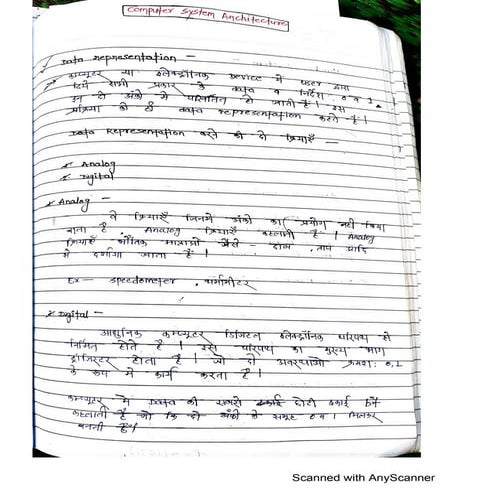 Computer System Architecture
Data representation -
कम्प्यूटर या इलेक्ट्रॉनिक Device में user द्वारा
दिये सभी प्रकार के data व निर्देश 0 व 1
उन दो अंको में परिवर्तित हो जाती है। इस
प्रक्रिया को ही data representation कहते है।
Data Representation करने की दो क्रियाएँ -
* Analog
* Digital
* Analog -
वे क्रियाएँ जिनमें अंको का प्रयोग नही किया
जाता है, Analog क्रियाएँ कहलाती है। Analog
क्रियाएँ भौतिक मात्राओ जैसे - दाब, ताप आदि
में दर्शाया जाता है।
Ex - speedometer, थर्मामीटर
* Digital -
आधुनिक कम्प्यूटर डिजिटल इलेक्ट्रॉनिक परिपथ से
निर्मित होते है। इस परिपथ का मुख्य भाग
ट्रांजिस्टर होता है। जो दो अवस्थाओ क्रमशः 0,1
के रूप में कार्य करता है।
कम्प्यूटर में Data की सबसे छोटी इकाई बिट
कहलाती है जो कि दो अंको के समूह 0 व 1 मिलकर
बनती है।
Scanned with AnyScanner